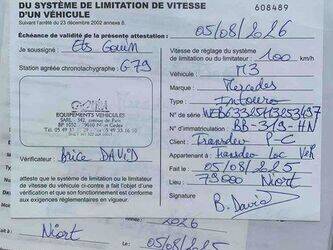 DU SYSTÈME DE LIMITATION DE VITESSE
D'UN VÉHICULE
608489
Suivant l'arrêté du 23 décembre 2002 annexe 8.
Échéance de validité de la présente attestation : 05/08/2026
Je soussigné : Ets Gouin
Station agrée chronotachygraphe : G79
EQUIPEMENTS VEHICULES
Vérificateur : Brice DAVID
atteste que le système de limitation ou le limiteur
de vitesse du véhicule ci-contre a fait l'objet d'une
vérification et que son fonctionnement est conforme aux
exigences réglementaires en vigueur.
Vitesse de réglage du système de
limitation ou du limiteur : 100 km/h
Genre : M3
Marque : Mercedes
Type : Intouro
N° de série
N° d'immatriculation : BB-319-HN
Client : Transdev P-C
Appartenant à : Transdev Loc Veh
Fait le : 05/08/2025
Lieu : 79000 Niort
Signature
B. David
2026
Niort
le 05/08/